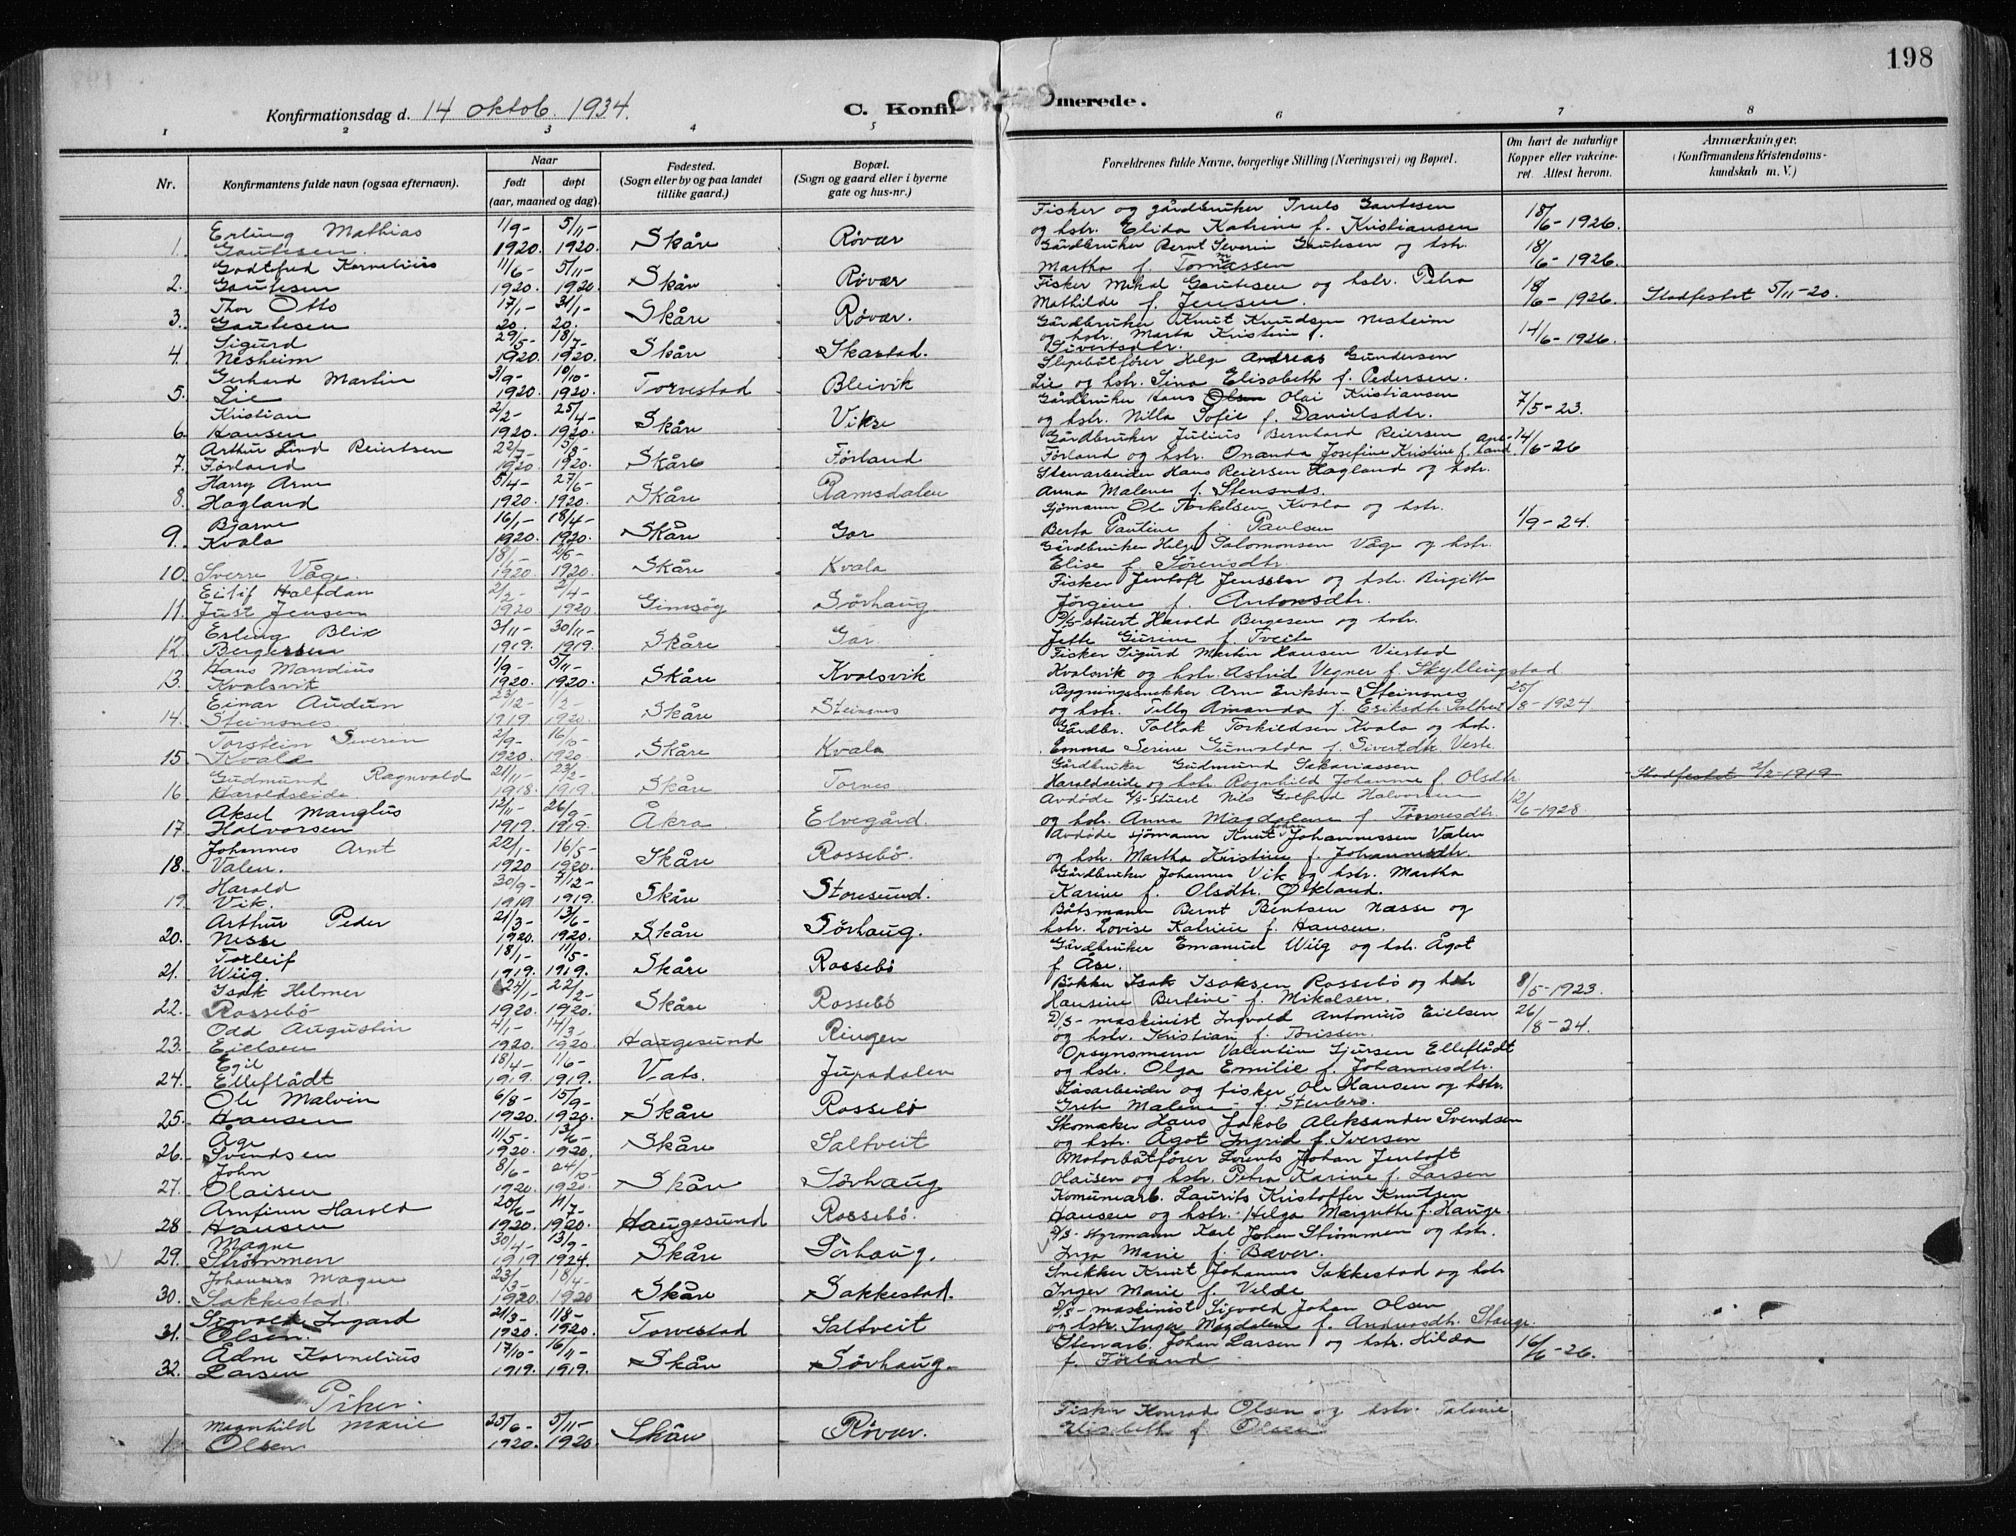 198
Konfirmationsdag d. 14 oktob. 1934. C. Konfir merede.
1 2 3 4 5 6 7 8
Nr. Konfirmantens fulde navn (ogsaa efternavn). Naar født døpt (aar, maaned og dag). Fødested. (Sogn eller by og paa landet tillike gaard.) Bopæl. (Sogn og gaard eller i byerne gate og hus-nr.) Forældrenes fulde Navne, borgerlige Stilling (Næringsvei) og Bopæl. Om havt de naturlige Kopper eller vakcineret. Attest herom. Anmærkninger. (Konfirmandens Kristendomskundskab m. V.)
Erling Mathias 1/9- 5/11- Fisker og gårdbruker Truls Gautesen 18/6-1926.
1. Gautesen. 1920. 1920. Skåre Røvær og hstr. Elida Katrine f. Kristiansen
Godtfred Kornelius 11/6- 5/11- Gårdbruker Bernt Severin Gautesen og hstr. 18/6-1926.
2. Gautesen 1920. 1920. Skåre Røvær Martha f. Tomassen
Thor Otto 17/1- 31/1- Fisker Mikal Gautesen og hstr. Petra 18/6-1926. Stadfestet 5/11-20.
3. Gautesen 20. 20. Skåre Røvær. Mathilde f. Jensen.
Sigurd 29/5- 18/7- Gårdbruker Knut Knudsen Nesheim 14/6-1926.
4. Nesheim 1920. 1920. Skåre Skastad. og hstr. Marta Kristine f. Sivertsdtr.
Gerhard Martin 3/9- 10/10- Slipebåtfører Helge Andreas Gundersen
5. Lie 1920. 1920. Torvestad Bleivik Lie og hstr. Sina Elisabeth f. Pedersen.
Kristian 2/2- 25/4- Gårdbruker Hans Olsen Olai Kristiansen 7/5-23.
6. Hansen 1920. 1920. Skåre Vikse og hstr. Nilla Sofie f. Danielsdtr.
Arthur Lind Reiertsen 22/7- 5/8- Gårdbruker Julius Bernhard Reiersen 14/6-26
7. Førland 1920. 1920. Skåre Førland Førland og hstr. Onanda Josefine Kristine f.
Harry Arne 5/4- 27/6- Stenarbeider Hans Reiersen Hagland og hstr.
8. Hagland 1920. 1920. Skåre Ramsdalen Anna Malene f. Stensnes.
Bjarne 16/1- 18/4- Sjømann Ole Torkelsen Kvala og hstr. 1/9-24.
9. Kvala 1920. 1920. Skåre Gar Berta Pauline f. Paulsen
18/1- 2/5- Gårdbruker Helge Salomonsen Våge og hstr.
10. Sverre Våge. 1920. 1920. Skåre Kvala Elise f. Sørensdtr.
Eilif Halfdan 2/2- 2/4- Fisker Jentoft Jenssen og hstr. Birgitte
11. Just Jensen 1920 1920 Gimsøy Sørhaug Jørgine f. Antonsdtr.
Erling Blix 3/11- 30/11- D/S-stuert Harold Bergesen og hstr.
12. Bergesen 1919. 1919. Skåre Gar. Jette Gurine f. Tveite
Hans Mandius 1/9- 5/11- Fisker Sigurd Martin Hansen Vierstad
13. Kvalsvik 1920. 1920. Skåre Kvalsvik Kvalsvik og hstr. Astrid Vegner f. Skyllingstad
Einar Audun 23/12- 1/2- Bygningssnekker Arne Eriksen Steinsnes 25/8-1924
14. Steinsnes. 1919. 1920. Skåre Steinsnes og hstr. Tilly Amanda f. Eriksdtr. Saltveit
Torstein Severin 2/9- 16/10- Gårdbr. Tollak Torkildsen Kvala og hstr.
15. Kvala 1920. 1920. Skåre Kvala Emma Serine Gunvalda f. Sivertdtr. Veste
Gudmund Ragnvald 21/11- 23/2- Gårdbruker Gudmund Sakariassen
16 Haraldseide 1918. 1919. Skåre Tornes. Haraldseide og hstr. Ragnhild Johanne f. Olsdtr. Stadfestet 2/2-1919
Aksel Manglus 12/11- 26/9- Avdøde D/S-stuert Nils Gotfred Halvorsen 12/6-1928
17. Halvorsen 1919. 1919. Åkra Elvegård. og hstr. Anna Magdalene f. Tønnesdtr.
Johannes Arnt 22/1- 16/5- Avdøde sjømann Knut Johan Johannessen Valen
18. Valen. 1920 1920. Skåre Rossebø. og hstr. Martha Kristine f. Johannesdtr.
Harald 30/9- 7/12- Gårdbruker Johannes Vik og hstr. Martha
19. Vik. 1919 1919. Skåre Storesund. Karine f. Olsdtr. Økland.
Arthur Peder 21/3- 13/6- Båtsmann Bernt Bentsen Næsse og
20. Nesse 1920. 1920. Skåre Sørhaug. hstr. Lovise Katrine f. Hansen.
Torleif 18/1- 11/5- Gårdbruker Emanuel Wiig og hstr. Ågot
21. Wiig 1919. 1919. Skåre Rossebø f. Åse.
Isak Helmer 24/1- 22/2- Bøkker Isak Isaksen Rossebø og hstr 8/5-1923.
22. Rossebø 1920. 1920. Skåre Rossebø Hansine Bertine f. Mikalsen.
Odd Augustin 4/1- 14/3- D/S-maskinist Ingvald Antonius Eielsen 26/8-24.
23. Eielsen 1920. 1920 Haugesund Ringen og hstr. Kristian f. Brissen.
Egil 18/4- 11/6- Opsynsmann Valentin Sjursen Elleflådt
24. Elleflådt 1919. 1919. Vats. Jupadalen og hstr. Olga Emilie f. Johannesdtr.
Ole Malvin 6/8- 15/9- Løsarbeider og fisker Ole Hansen og hstr.
25. Hansen 1920. 1920. Skåre Rossebø Grete Malene f. Stenbro.
Åge 11/5- 13/6- Skomaker Hans Jakob Aleksander Svendsen
26. Svendsen 1920. 1920. Skåre Saltveit og hstr. Ågot Ingrid f. Iversen
John 8/6- 24/10- Motorbåtfører Lorents Johan Jentoft
27. Olaisen 1920. 1920. Skåre Sørhaug Olaisen og hstr. Petra Karine f. Larsen
Arnfinn Harold 20/6- 11/7- Komunearb. Laurits Kristoffer Knutsen
28 Hansen 1920. 1920. Haugesund Rossebø. Hansen og hstr. Helga Margrethe f. Hauge.
Magne 30/4- 13/9- D/S-styrmann Karl Johan Strømmen og hstr.
29. Strømmen 1919 1924. Skåre Sørhaug. Inga Marie f. Bæver.
Johannes Magne 23/2- 18/4- Snekker Knut Johannes Sakkestad og hstr
30. Sakkestad. 1920. 1920 Skåre Sakkestad. Inger Marie f. Velde
Sigvald Ingard 21/3- 1/8- D/S-maskinist Sigvald Johan Olsen
31. Olsen. 1920. 1920. Torvestad Saltveit og hstr. Inger Magdalene f. Andreasdtr. Stange
Edne Kornelius 17/10- 16/11- Stenarb. Johan Larsen og hstr. Hilda 16/6-26.
32. Larsen 1919. 1919. Skåre Sørhaug. f. Førland
Piker.
Magnhild Marie 25/6- 5/11- Fisker Konrad Olsen og hstr. Talavie
1 Olsen 1920. 1920. Skåre Røvær. Elisabeth f. Olsen